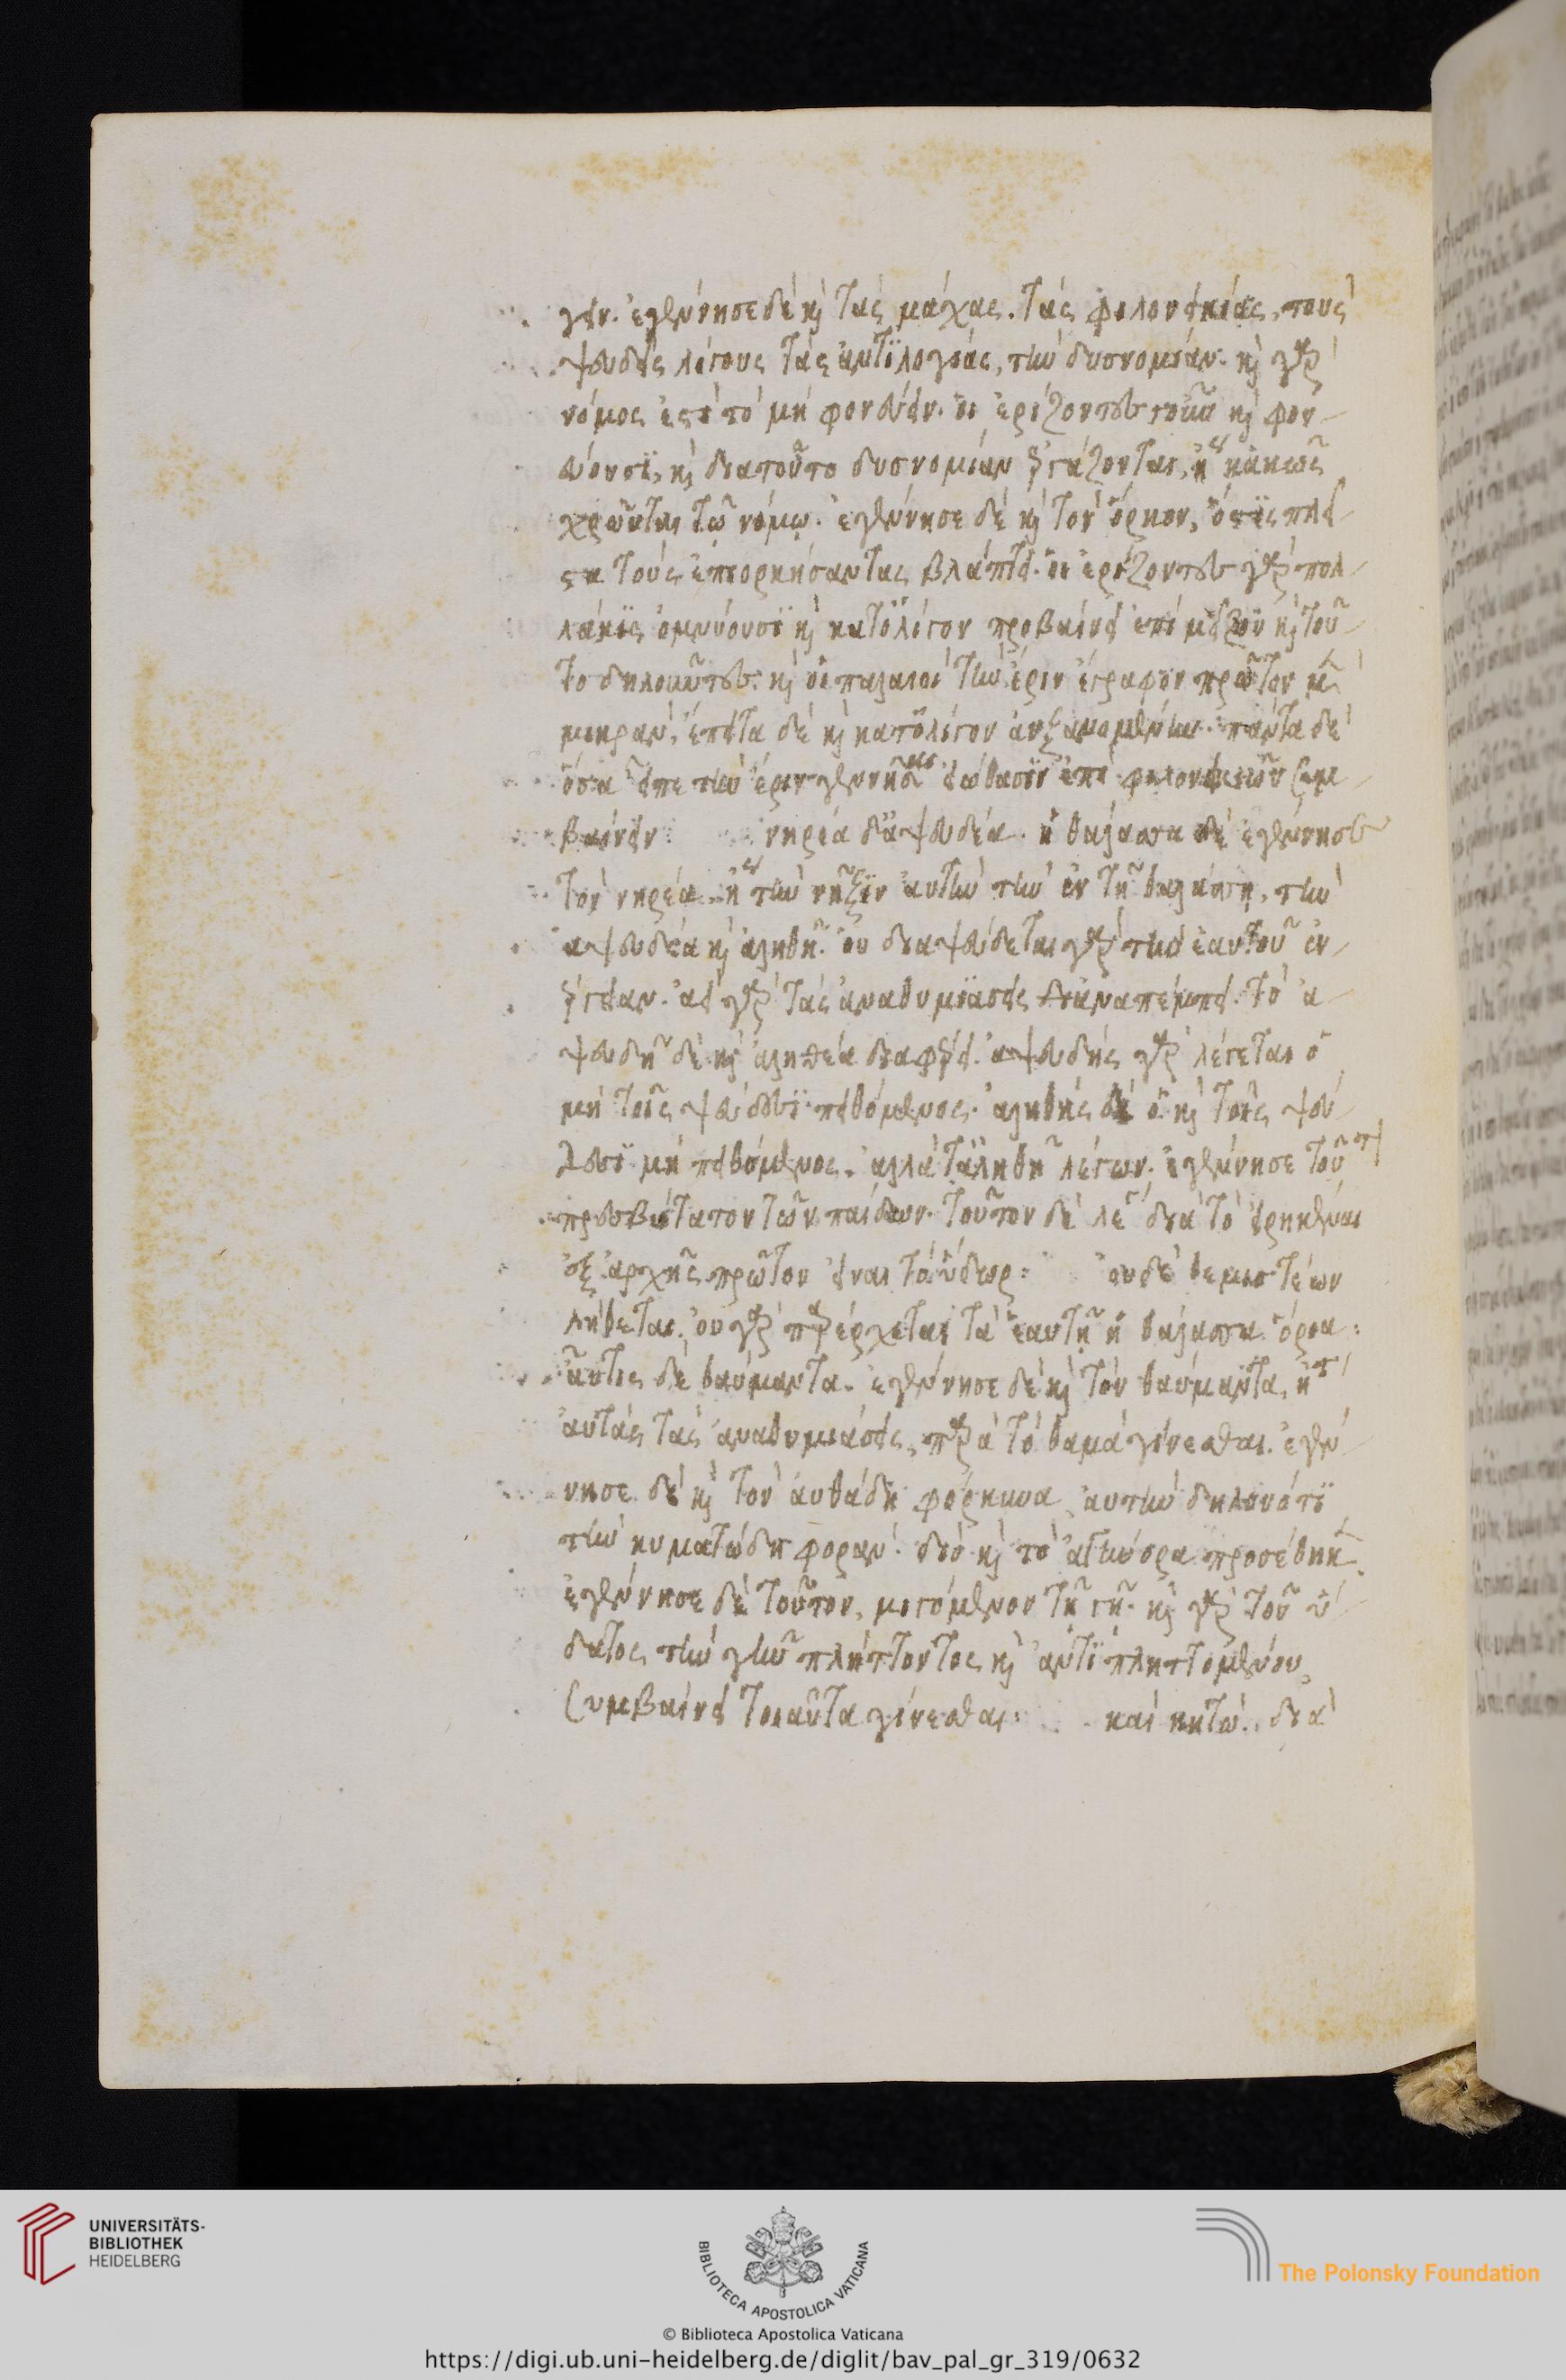 γειν. ἐγέννησε δὲ κ̀ τὰς μάχας. τὰς φιλονεικίας, τοὺς
ψευδεῖς λόγους τὰς ἀντϊλογίας, τὴν δυσνομίαν. κ̀ γὰρ
νόμος ἐστὶ τὸ μὴ φονεύειν. οἱ ἐρίζοντες γοῦν κ̀ φον
εύουσϊ, κ̀ διατοῦτο δυσνομίαν ἐργάζονται, κακῶς
χρῶνται τῶ νόμω. ἐγέννησε δὲ κ̀ τὸν ὅρκον, ὅστϊς πλεῖ
στα τοὺς ἐπιορκήσαντας βλάπτει. οἱ ἐρίζοντες γὰρ πολ
λάκϊς ὀμνύουσϊ κ̀ κατολίγον προβαίνει ἐπὶ μεῖζον κ̀ τοῦ
το δηλοῦντες κ̀ οἱ παλαιοὶ τὴν ἔριν ἔγραφον πρῶτον μὲν
μικρὰν, ἔπειτα δὲ κ̀ κατολίγον αὐξανομένην. πάντα δὲ
ὅσα εἶπε τὴν ἔριν γεννῆσαι εἰώθασϊν ἐπὶ φιλονεικιῶν συμ
βαίνειν: νηρέα δ' ἀψευδέα. ἡ θάλασσα δὲ ἐγέννησε
τὸν νηρέα. τὴν νῆξϊν αὐτὴν τὴν ἐν τῆ θαλάσση, τὴν
ἀψευδέα κ̀ ἀληθῆ. οὐ διαψεύδεται γὰρ τὴν ἑαυτοῦ ἐν
έργειαν. ἀεὶ γὰρ τὰς ἀναθυμϊάσεις ἀναπέμπει. τὸ ἀ
ψευδῆ δὲ κ̀ ἀληθέα διαφέρει. ἀψευδὴς γὰρ λέγεται ὁ
μὴ τοῖς ψεύδεσϊ πειθόμενος. ἀληθὴς δὲ ὁ κ̀ τοῖς ψεύ
δεσϊ μὴ πειθόμενος. ἀλλὰ τἀληθῆ λέγων. ἐγέννησε τοῦτον
πρεσβύτατον τῶν παίδων. τοῦτον δὲ λέγει διὰ τὸ εἰρηκέναι
ἐξ ἀρχῆς πρῶτον εἶναι τὸ ὕδωρ: οὐδὲ θεμιστέων
λήθεται. οὐ γὰρ παρέρχεται τὰ ἑαυτῆ ἡ θάλασσα ὅρια:
αὖτις δὲ θαύμαντα. ἐγέννησε δὲ κ̀ τὸν θαύμαντα,
αὐτὰς τὰς ἀναθυμιάσεις, παρὰ τὸ θαμὰ γίνεσθαι. ἐγέν
νησε δὲ κ̀ τὸν αὐθάδη φόρκυνα, αὐτὴν δηλονότϊ
τὴν κυματώδη φοράν. διὸ κ̀ τὸ ἀγήνορα προσέθηκε.
ἐγέννησε δὲ τοῦτον, μισγόμενον τῆ γῆ. κ̀ γὰρ τοῦ ὕ
δατος τὴν γῆν πλήττοντος κ̀ ἀντϊπληττομένου,
συμβαίνει τοιαῦτα γίνεσθαι: καὶ κητώ. διὰ
UNIVERSITÄTS-
BIBLIOTHEK
HEIDELBERG
BIBLIOTECA APOSTOLICA VATICANA
The Polonsky Foundation
© Biblioteca Apostolica Vaticana
https://digi.ub.uni-heidelberg.de/diglit/bav_pal_gr_319/0632